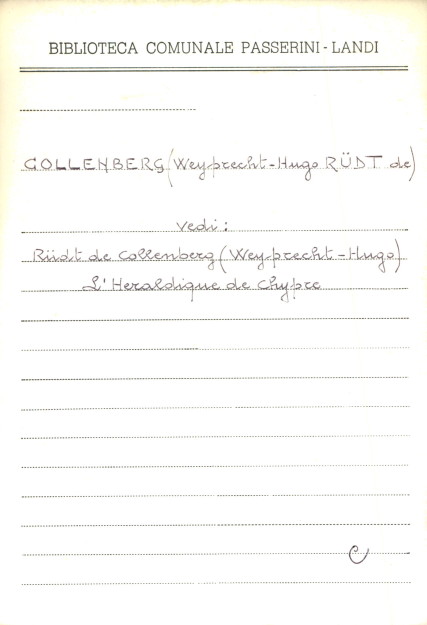 BIBLIOTECA COMUNALE PASSERINI - LANDI
COLLENBERG (Weyprecht-Hugo RÜDT de)
Vedi:
Rüdt de Collenberg (Weyprecht-Hugo)
L'Heraldique de Chypre
C